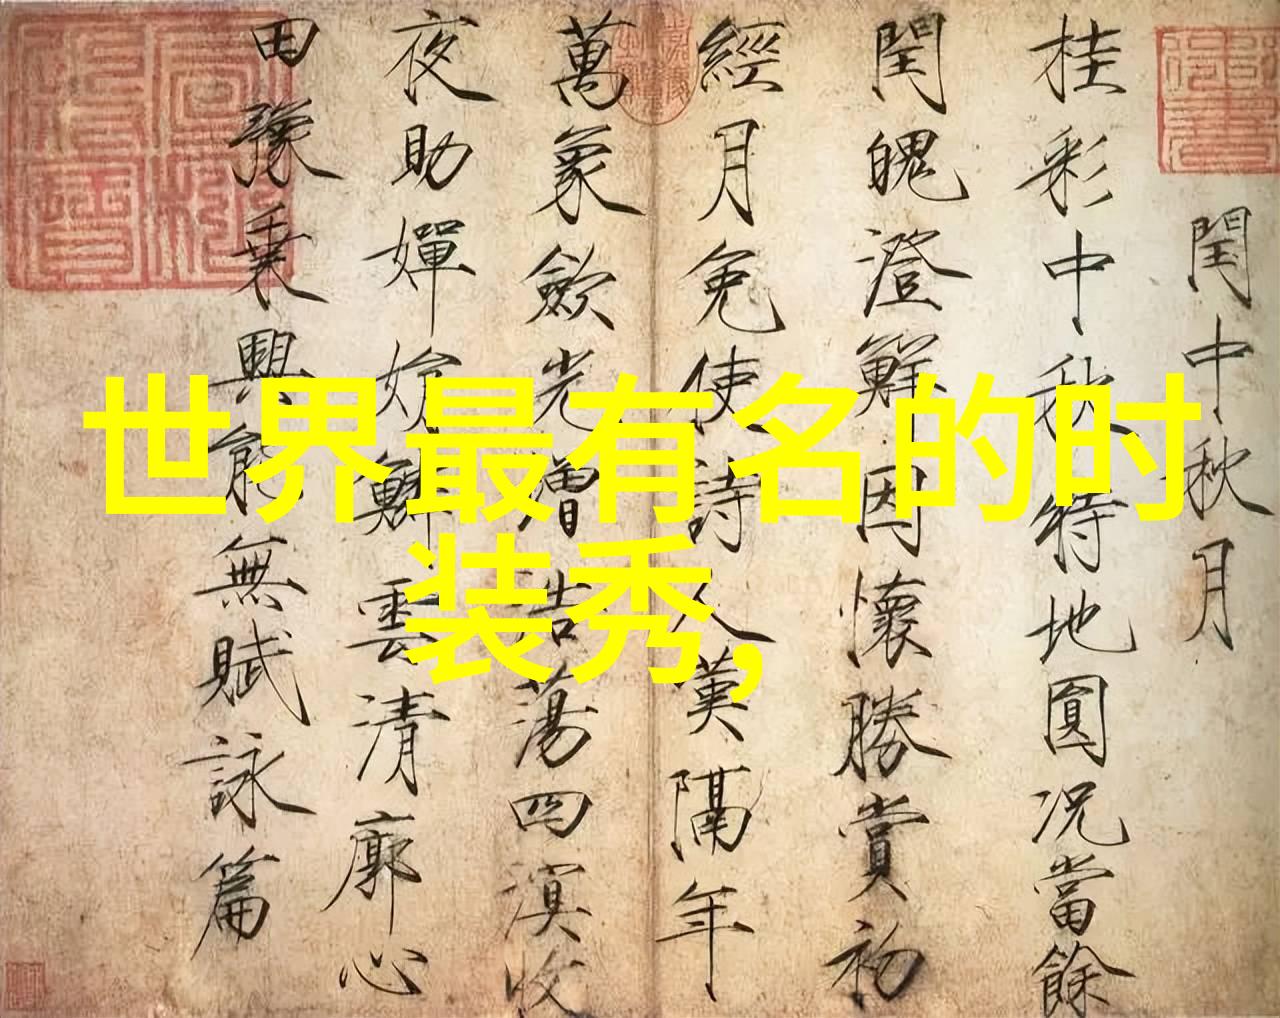 世界最有名的时
装秀,
閏中秋月
桂彩中秋特地圓况當餘
閏魄澄鮮因懷勝賞初
經月免使詩人嘆隔年
萬象歛光增浩蕩四溟收
夜助嬋娟鱗雲清廓心
田豫乗興能無賦詠篇